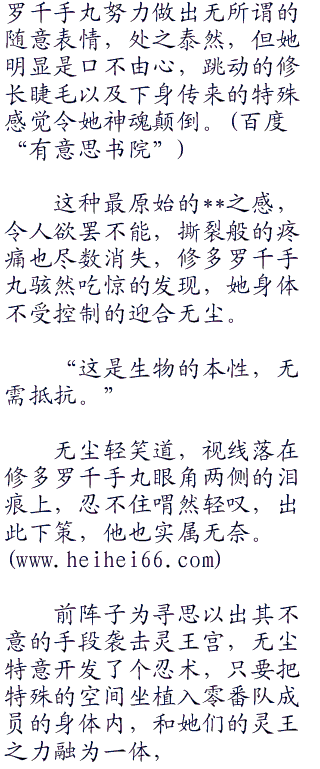 罗千手丸努力做出无所谓的
随意表情，处之泰然，但她
明显是口不由心，跳动的修
长睫毛以及下身传来的特殊
感觉令她神魂颠倒。(百度
“有意思书院”)
这种最原始的**之感，
令人欲罢不能，撕裂般的疼
痛也尽数消失，修多罗千手
丸骇然吃惊的发现，她身体
不受控制的迎合无尘。
“这是生物的本性，无
需抵抗。”
无尘轻笑道，视线落在
修多罗千手丸眼角两侧的泪
痕上，忍不住喟然轻叹，出
此下策，他也实属无奈。
(www.heihei66.com)
前阵子为寻思以出其不
意的手段袭击灵王宫，无尘
特意开发了个忍术，只要把
特殊的空间坐植入零番队成
员的身体内，和她们的灵王
之力融为一体，